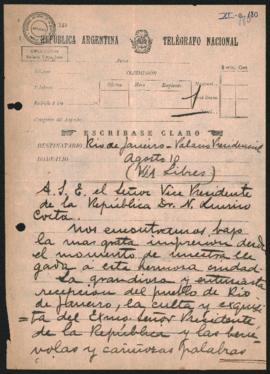 REPÚBLICA ARGENTINA TELÉGRAFO NACIONAL
ESCRÍBASE CLARO
DESTINATARIO Rio de Janeiro - Palacio Presidencial
DOMICILIO Agosto 10
(Via Libres)
A. S. E. el Señor Vice Presidente
de la República Dr. N.
Costa.
Nos encontramos bajo
la mas grata impresion desde
el momento de nuestra lle
gada a esta hermosa ciudad.
La grandiosa y entusiasta
recepcion del pueblo de Rio
de Janeiro, la culta y exqui
ta del Exmo. Señor Presidente
de la República y las bene
volas y cariñosas palabras